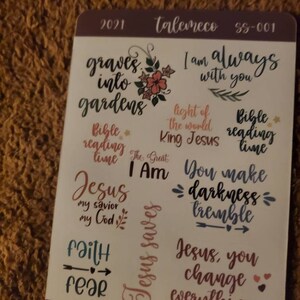 2021 talemeco SS-001
graves
into
gardens
I am always
with you
light of
the world
King Jesus
Bible
reading
time
Bible
reading
time
The Great
I Am
You make
darkness
tremble
Jesus
my savior
my God
Jesus saves
faith
fear
Jesus, you
change
everything